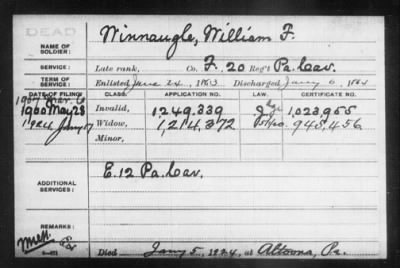 DEAD
NAME OF SOLDIER: Winnaugle, William F.
SERVICE: Late rank, Co. F. 20 Reg't Pa. Cav.
TERM OF SERVICE: Enlisted June 24, 1863 Discharged Jany 6, 1864
DATE OF FILING: CLASS: APPLICATION NO. LAW. CERTIFICATE NO.
1907 Mar. 6
1900 May 28 Invalid, 1,249,339 Age 1,023,955
1924 Jany 17 Widow, 1,214,372 945,456
Minor,
ADDITIONAL SERVICES: E. 12 Pa. Cav.
REMARKS:
Died Jany 5, 1924, at Altoona, Pa.